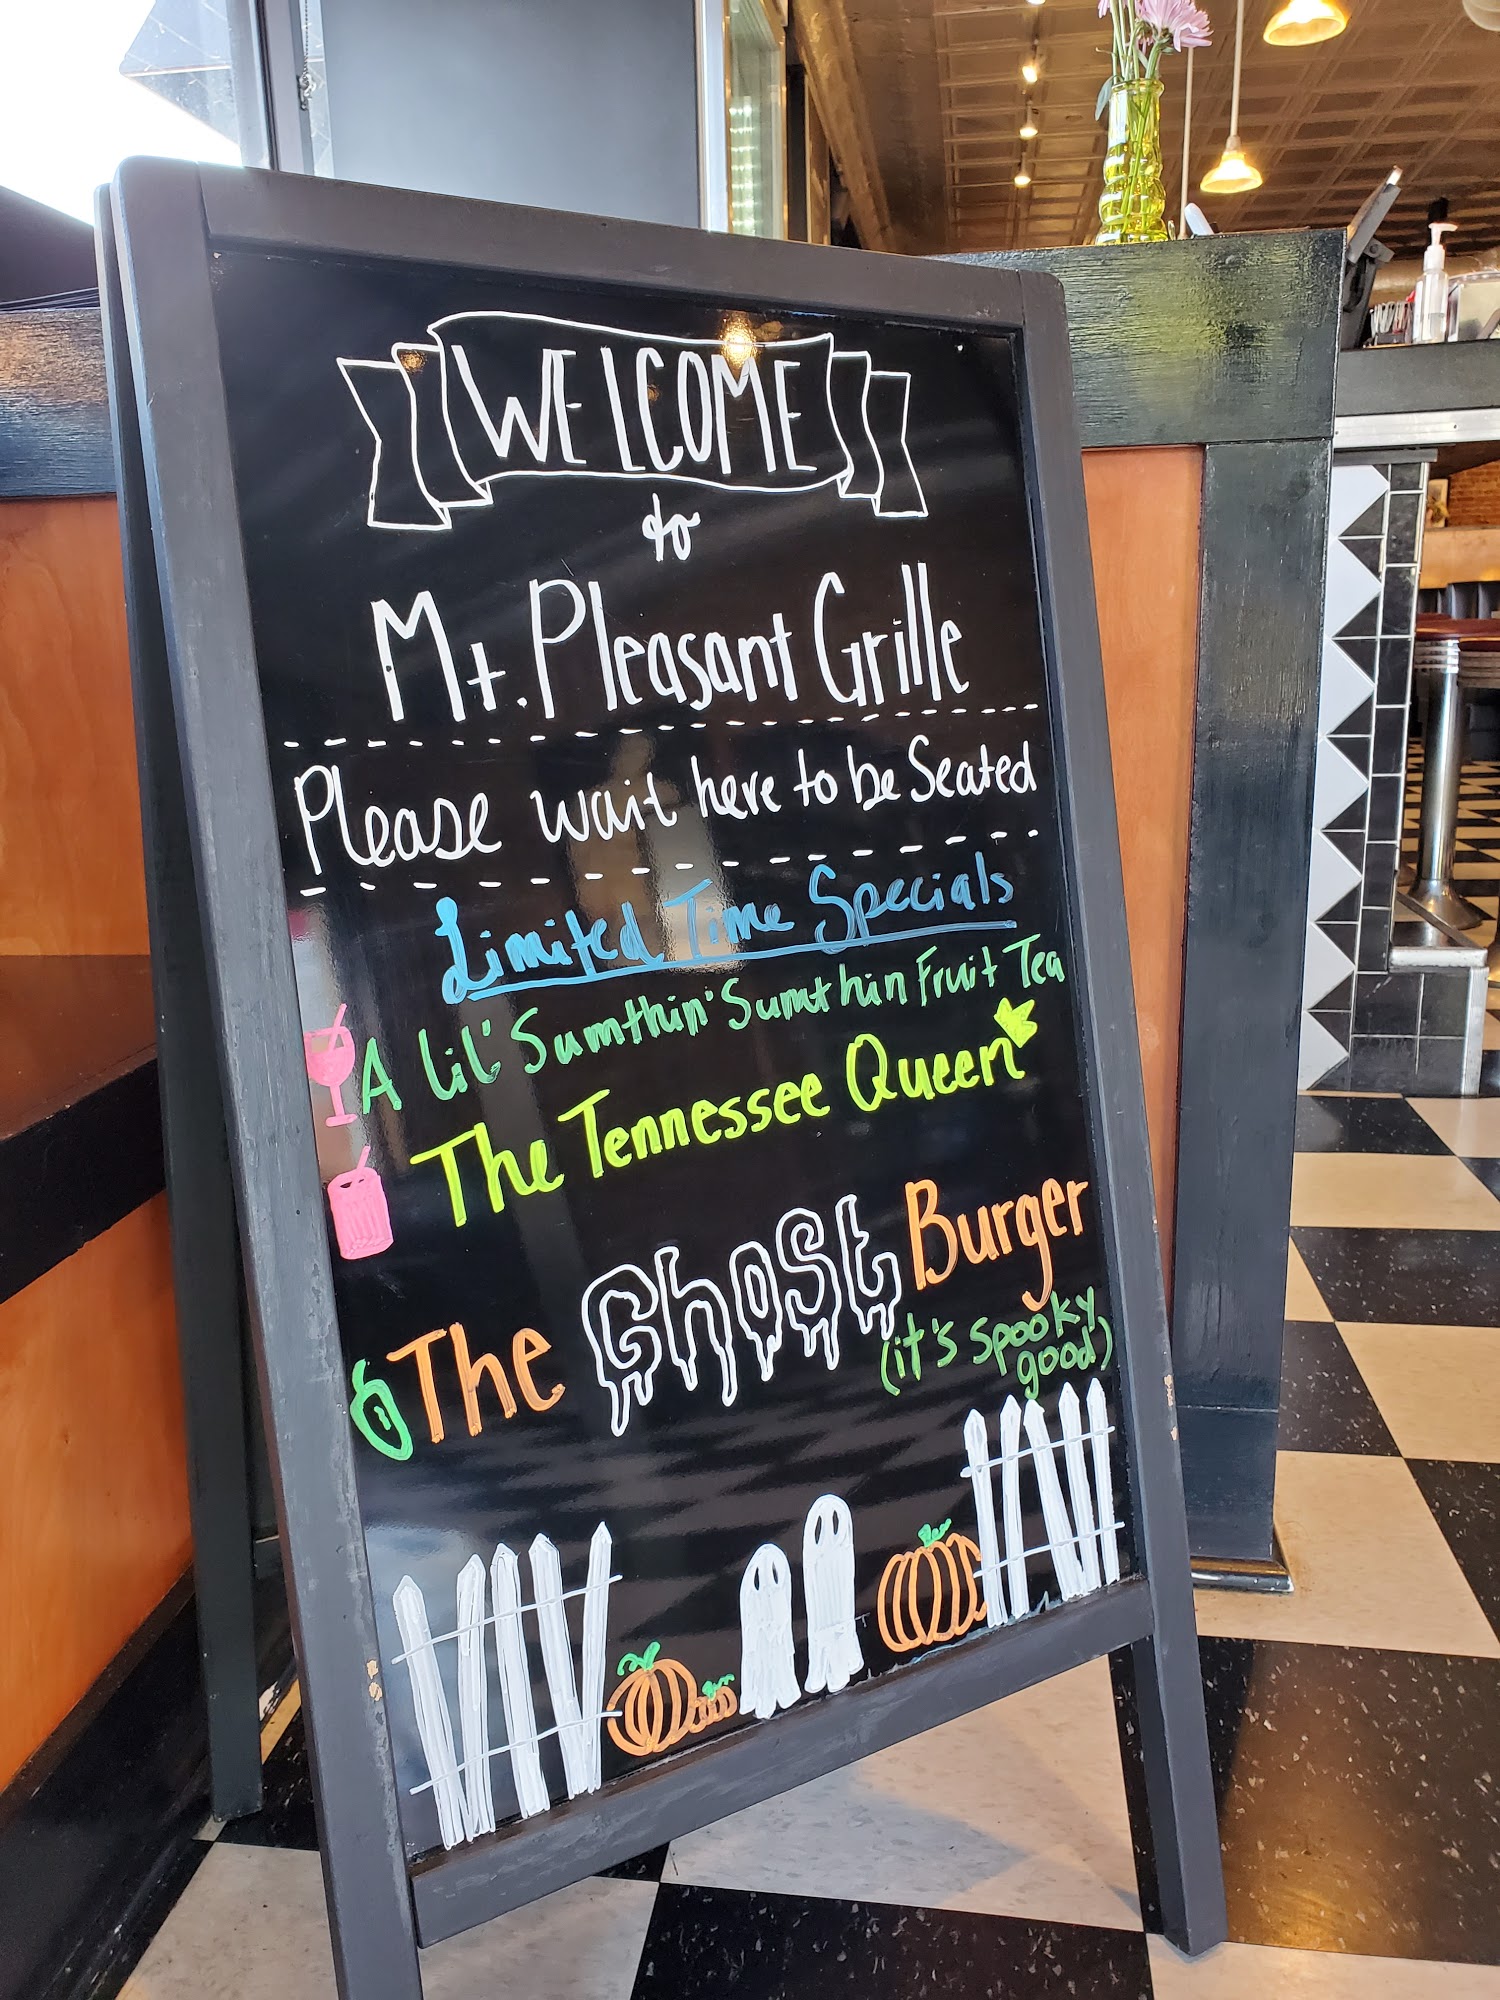 WELCOME
to
Mt. Pleasant Grille
Please wait here to be Seated
Limited Time Specials
A Lil' Sumthin' Sumthin Fruit Tea
The Tennessee Queen
The Ghost Burger
(it's spooky
good)